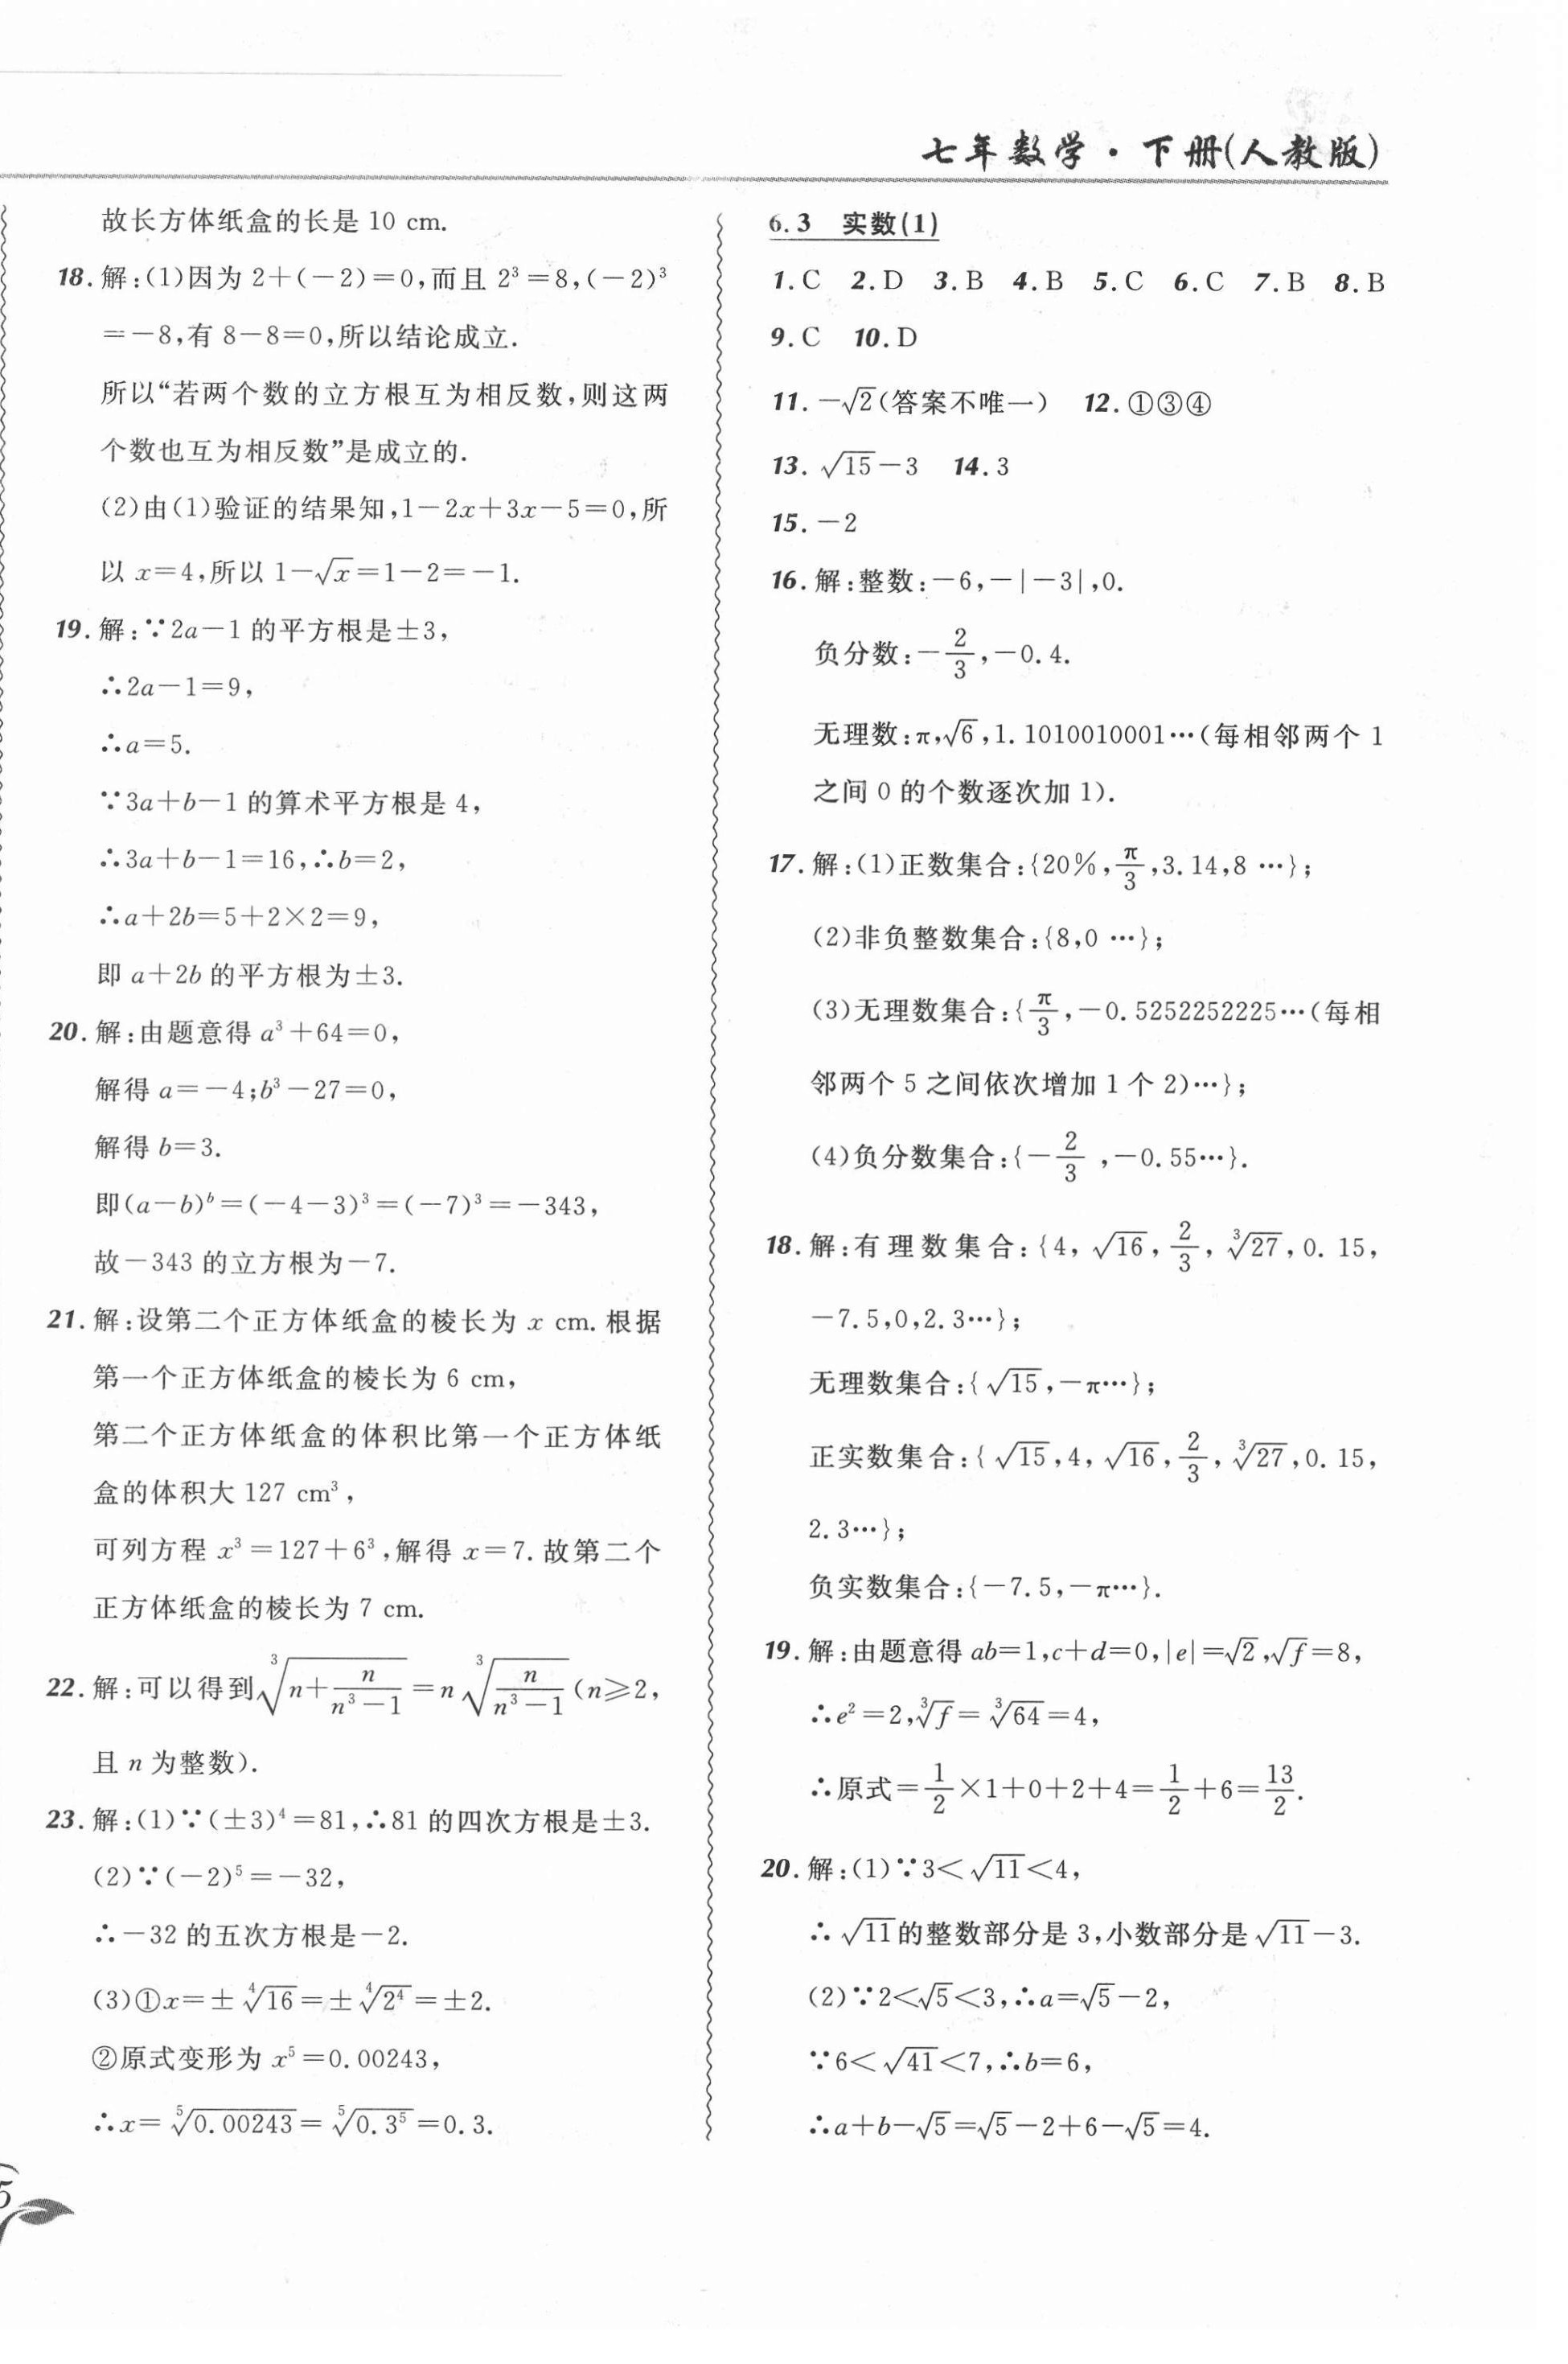 七年数学·下册(人教版)
故长方体纸盒的长是 10 cm.
18. 解:(1)因为 2+(-2)=0,而且 2³=8,(-2)³
=-8,有 8-8=0,所以结论成立.
所以“若两个数的立方根互为相反数,则这两
个数也互为相反数”是成立的.
(2)由(1)验证的结果知,1-2x+3x-5=0,所
以 x=4,所以 1-√x=1-2=-1.
19. 解:∵2a-1 的平方根是±3,
∴2a-1=9,
∴a=5.
∵3a+b-1 的算术平方根是 4,
∴3a+b-1=16,∴b=2,
∴a+2b=5+2×2=9,
即 a+2b 的平方根为±3.
20. 解:由题意得 a³+64=0,
解得 a=-4;b³-27=0,
解得 b=3.
即(a-b)ᵇ=(-4-3)³=(-7)³=-343,
故-343 的立方根为-7.
21. 解:设第二个正方体纸盒的棱长为 x cm. 根据
第一个正方体纸盒的棱长为 6 cm,
第二个正方体纸盒的体积比第一个正方体纸
盒的体积大 127 cm³,
可列方程 x³=127+6³,解得 x=7. 故第二个
正方体纸盒的棱长为 7 cm.
22. 解:可以得到∛(n+n/(n³-1))=n∛(n/(n³-1))(n≥2,
且 n 为整数).
23. 解:(1)∵(±3)⁴=81,∴81 的四次方根是±3.
(2)∵(-2)⁵=-32,
∴-32 的五次方根是-2.
(3)①x=±∜16=±∜2⁴=±2.
②原式变形为 x⁵=0.00243,
∴x=⁵√0.00243=⁵√0.3⁵=0.3.
5
6.3 实数(1)
1. C 2. D 3. B 4. B 5. C 6. C 7. B 8. B
9. C 10. D
11. -√2(答案不唯一) 12. ①③④
13. √15-3 14. 3
15. -2
16. 解:整数:-6,-|-3|,0.
负分数:-2/3,-0.4.
无理数:π,√6,1.1010010001…(每相邻两个 1
之间 0 的个数逐次加 1).
17. 解:(1)正数集合:{20%,π/3,3.14,8 …};
(2)非负整数集合:{8,0 …};
(3)无理数集合:{π/3,-0.5252252225…(每相
邻两个 5 之间依次增加 1 个 2)…};
(4)负分数集合:{-2/3,-0.55…}.
18. 解:有理数集合:{4,√16,2/3,∛27,0.15,
-7.5,0,2.3…};
无理数集合:{√15,-π…};
正实数集合:{√15,4,√16,2/3,∛27,0.15,
2.3…};
负实数集合:{-7.5,-π…}.
19. 解:由题意得 ab=1,c+d=0,|e|=√2,√f=8,
∴e²=2,∛f=∛64=4,
∴原式=1/2×1+0+2+4=1/2+6=13/2.
20. 解:(1)∵3<√11<4,
∴√11的整数部分是 3,小数部分是√11-3.
(2)∵2<√5<3,∴a=√5-2,
∵6<√41<7,∴b=6,
∴a+b-√5=√5-2+6-√5=4.